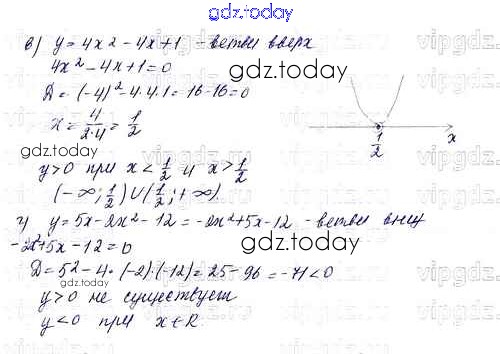 gdz.today
в) y = 4x2 - 4x + 1 - ветви вверх
4x² - 4x + 1 = 0
gdz.today
Д = (-4)² - 4·4·1 = 16 - 16 = 0
x = 4/2·4 = 1/2
x
1/2
gdz.today
y > 0 при x < 1/2 и x > 1/2
(-∞; 1/2) ∪ (1/2; +∞)
г) y = 5x - 2x² - 12 = -2x² + 5x - 12 - ветви вниз
-2x² + 5x - 12 = 0
gdz.today
Д = 5² - 4·(-2)·(-12) = 25 - 96 = -71 < 0
y > 0 не существует
y < 0 при x ∈ R.
gdz.today
vipgdz